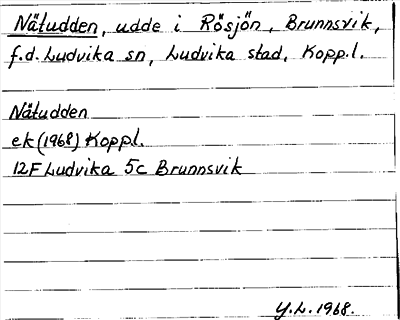 Nätudden, udde i Rösjön, Brunnsvik,
f.d. Ludvika sn, Ludvika stad, Kopp.l.
Nätudden
ek (1968) Koppl.
12F Ludvika 5c Brunnsvik
Y.L. 1968.